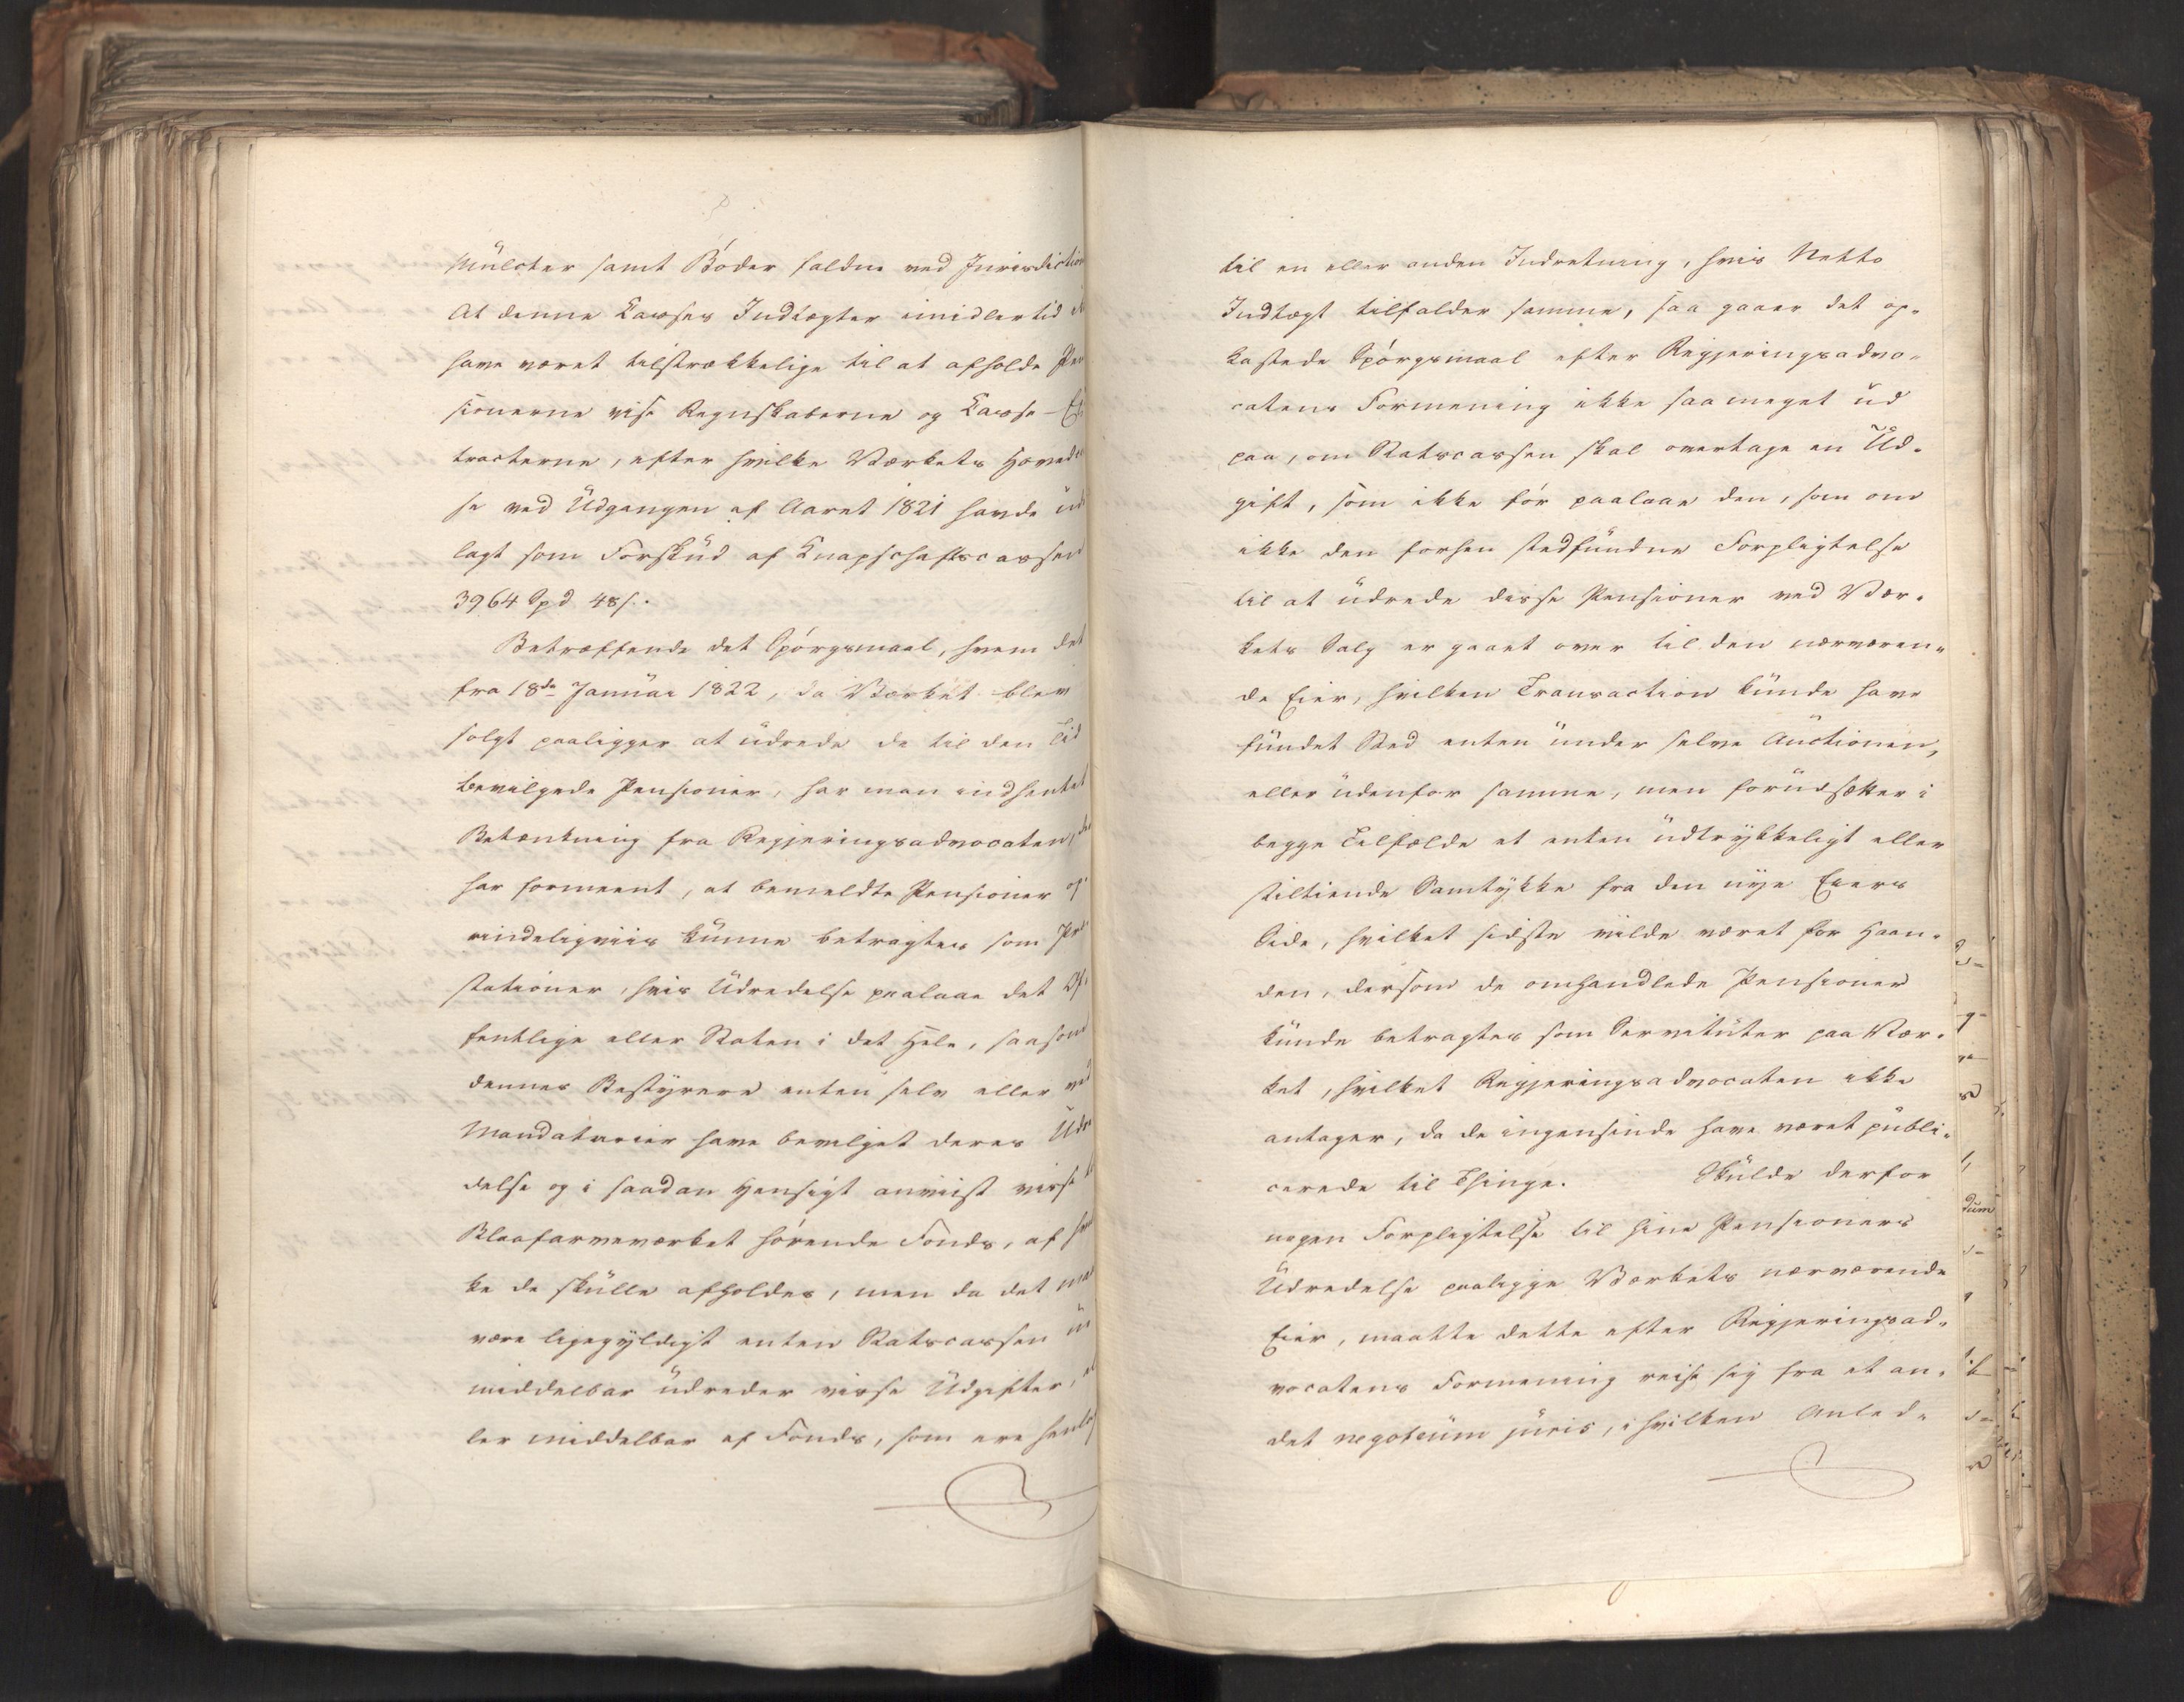 Mulcter samt Böder faldne ved Jurisdiction
At denne Casses Indtægter imidlertid
have været tilstrækkelige til at afholde Pen
sionerne vise Regnskaberne og Casse-Ex
tracterne, efter hvilke Værkets Hoved
se ved Udgangen af Aaret 1821 havde ud
lagt som Forskud af Knapschaftscassen
3964 Spd 48 s.
Betræffende det Spörgsmaal, hvem det
fra 18de Januar 1822, da Værket blev
solgt paaligger at udrede de til den Tid
bevilgede Pensioner, har man indhentet
Betænkning fra Regjeringsadvocaten, der
har formeent, at bemeldte Pensioner op
rindeligviis kunne betragtes som Præ
stationer, hvis Udredelse paalaae det Of
fentlige eller Staten i det Hele, saasom
dennes Bestyrere enten selv eller ved
Mandatarier have bevilget deres Udre
delse og i saadan Hensigt anviist visse til
Blaafarveværket hörende Fonds, af hvil
ke de skulle afholdes, men da det maa
være ligegyldigt enten Statscassen u
middelbar udreder visse Udgifter, el
ler middelbar af Fonds, som ere henlagt
til en eller anden Indretning, hvis Netto
Indtægt tilfalder samme, saa gaaer det op-
kastede Spörgsmaal efter Regjeringsadvo-
catens Formening ikke saa meget ud
paa, om Statscassen skal overtage en Ud-
gift, som ikke för paalaae den, som om
ikke den forhen stedfundne Forpligtelse
til at udrede disse Pensioner ved Vær-
kets Salg er gaaet over til den nærværen-
de Eier, hvilken Transaction kunde have
fundet Sted enten under selve Auctionen,
eller udenfor samme, men forudsætter i
begge Tilfælde et enten udtrykkeligt eller
stiltiende Samtykke fra den nye Eiers
Side, hvilket sidste vilde været for Haan-
den, dersom de omhandlede Pensioner
kunde betragtes som Servituter paa Vær-
ket, hvilket Regjeringsadvocaten ikke
antager, da de ingensinde have været publi-
cerede til Thinge. Skulde derfor
nogen Forpligtelse til hine Pensioners
Udredelse paaligge Værkets nærværende
Eier, maatte dette efter Regjeringsad-
vocatens Formening reise sig fra et an-
det negotium juris, i hvilken Anled-